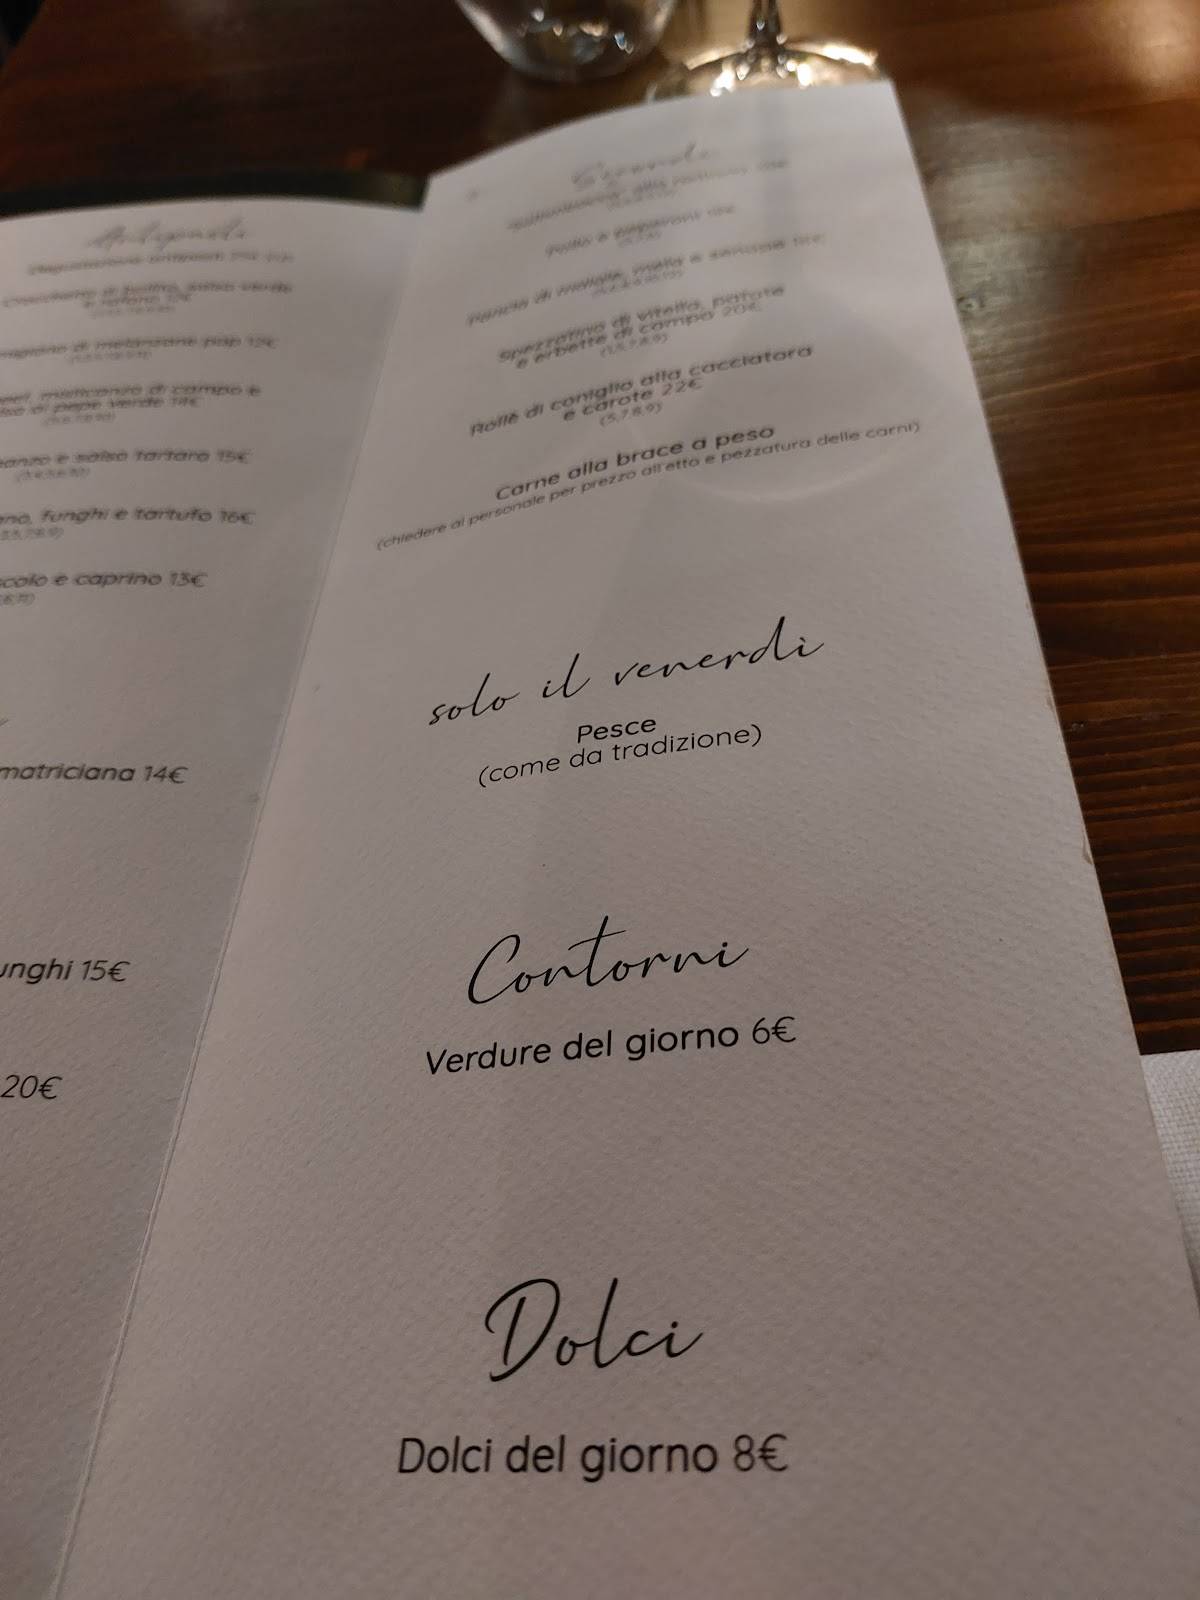 Antipasti
Degustazione antipasti
di melanzane pop 12€
misticanza di campo e
di pepe verde 14€
e salsa tartara 15€
funghi e tartufo 16€
e caprino 13€
matriciana 14€
unghi 15€
20€
Secondi
alla romana
Pollo e peperoni
Pancia di maiale, mela e senape
Spezzatino di vitella, patate
e erbette di campo 20€
(1,5,7,8,9)
Rollè di coniglio alla cacciatora
e carote 22€
(5,7,8,9)
Carne alla brace a peso
(chiedere al personale per prezzo all'etto e pezzatura delle carni)
solo il venerdì
Pesce
(come da tradizione)
Contorni
Verdure del giorno 6€
Dolci
Dolci del giorno 8€